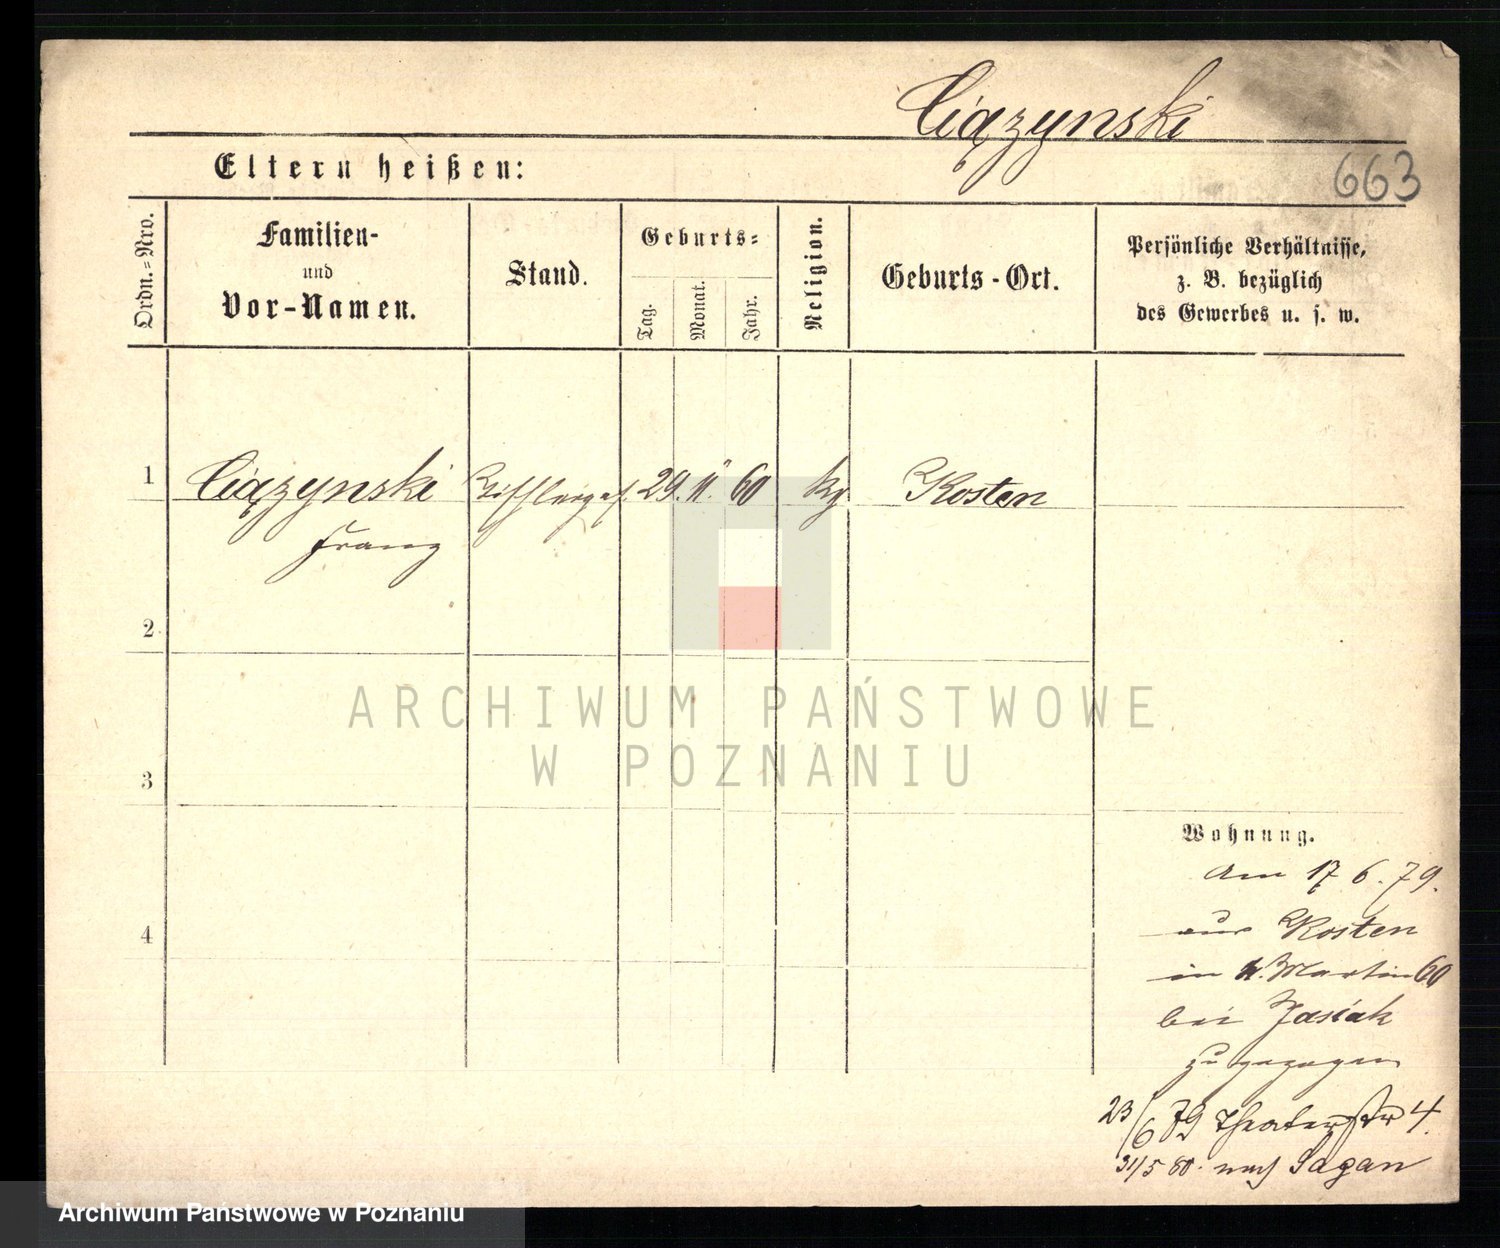 Ciązynski
Eltern heißen:
663
Ordn.-Nro.
Familien-
und
Vor-Namen.
Stand.
Geburts-
Tag.
Monat.
Jahr.
Religion.
Geburts-Ort.
Persönliche Verhältnisse,
z. B. bezüglich
des Gewerbes u. s. w.
1
Ciązynski Tischlerges. 29. 11. 60 kg Kosten
Franz
2
ARCHIWUM PAŃSTWOWE
W POZNANIU
3
Wohnung.
Am 17 6. 79.
aus Kosten
4
in St. Martin 60
bei Jasiak
zugezogen
23/6 79 Theaterstr 4.
31/5 80. nach Sagan
Archiwum Państwowe w Poznaniu